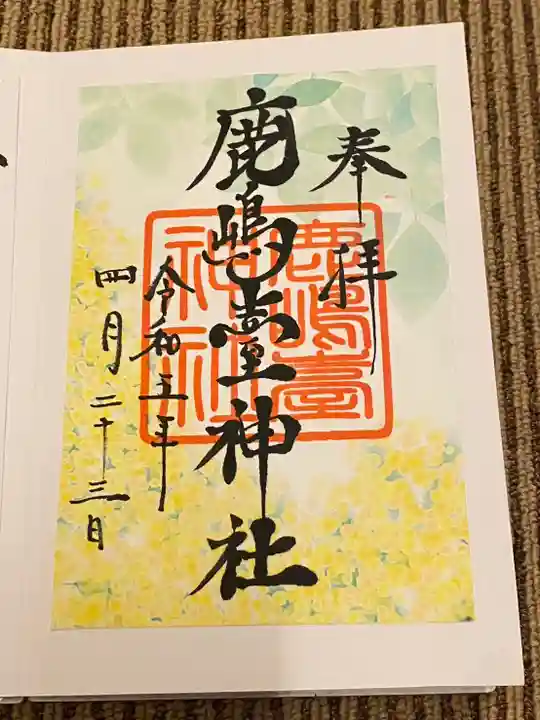 奉拝
鹿嶋臺神社
鹿嶋臺
神社
令和五年
四月二十三日